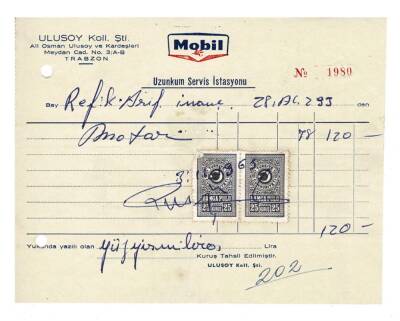 ULUSOY Koll. Şti.
Ali Osman Ulusoy ve Kardeşleri
Meydan Cad. No. 3/A-B
TRABZON
Mobil
Uzunkum Servis İstasyonu
No 1980
Bay Refik Arif 28.AC.293 den
120 —
DAMGA PULU DAMGA PULU
25 KURUŞ 25 25 KURUŞ 25
120 —
Yukarıda yazılı olan yüzyirmilira Lira
Kuruş Tahsil Edilmiştir.
ULUSOY Koll. Şti.
202